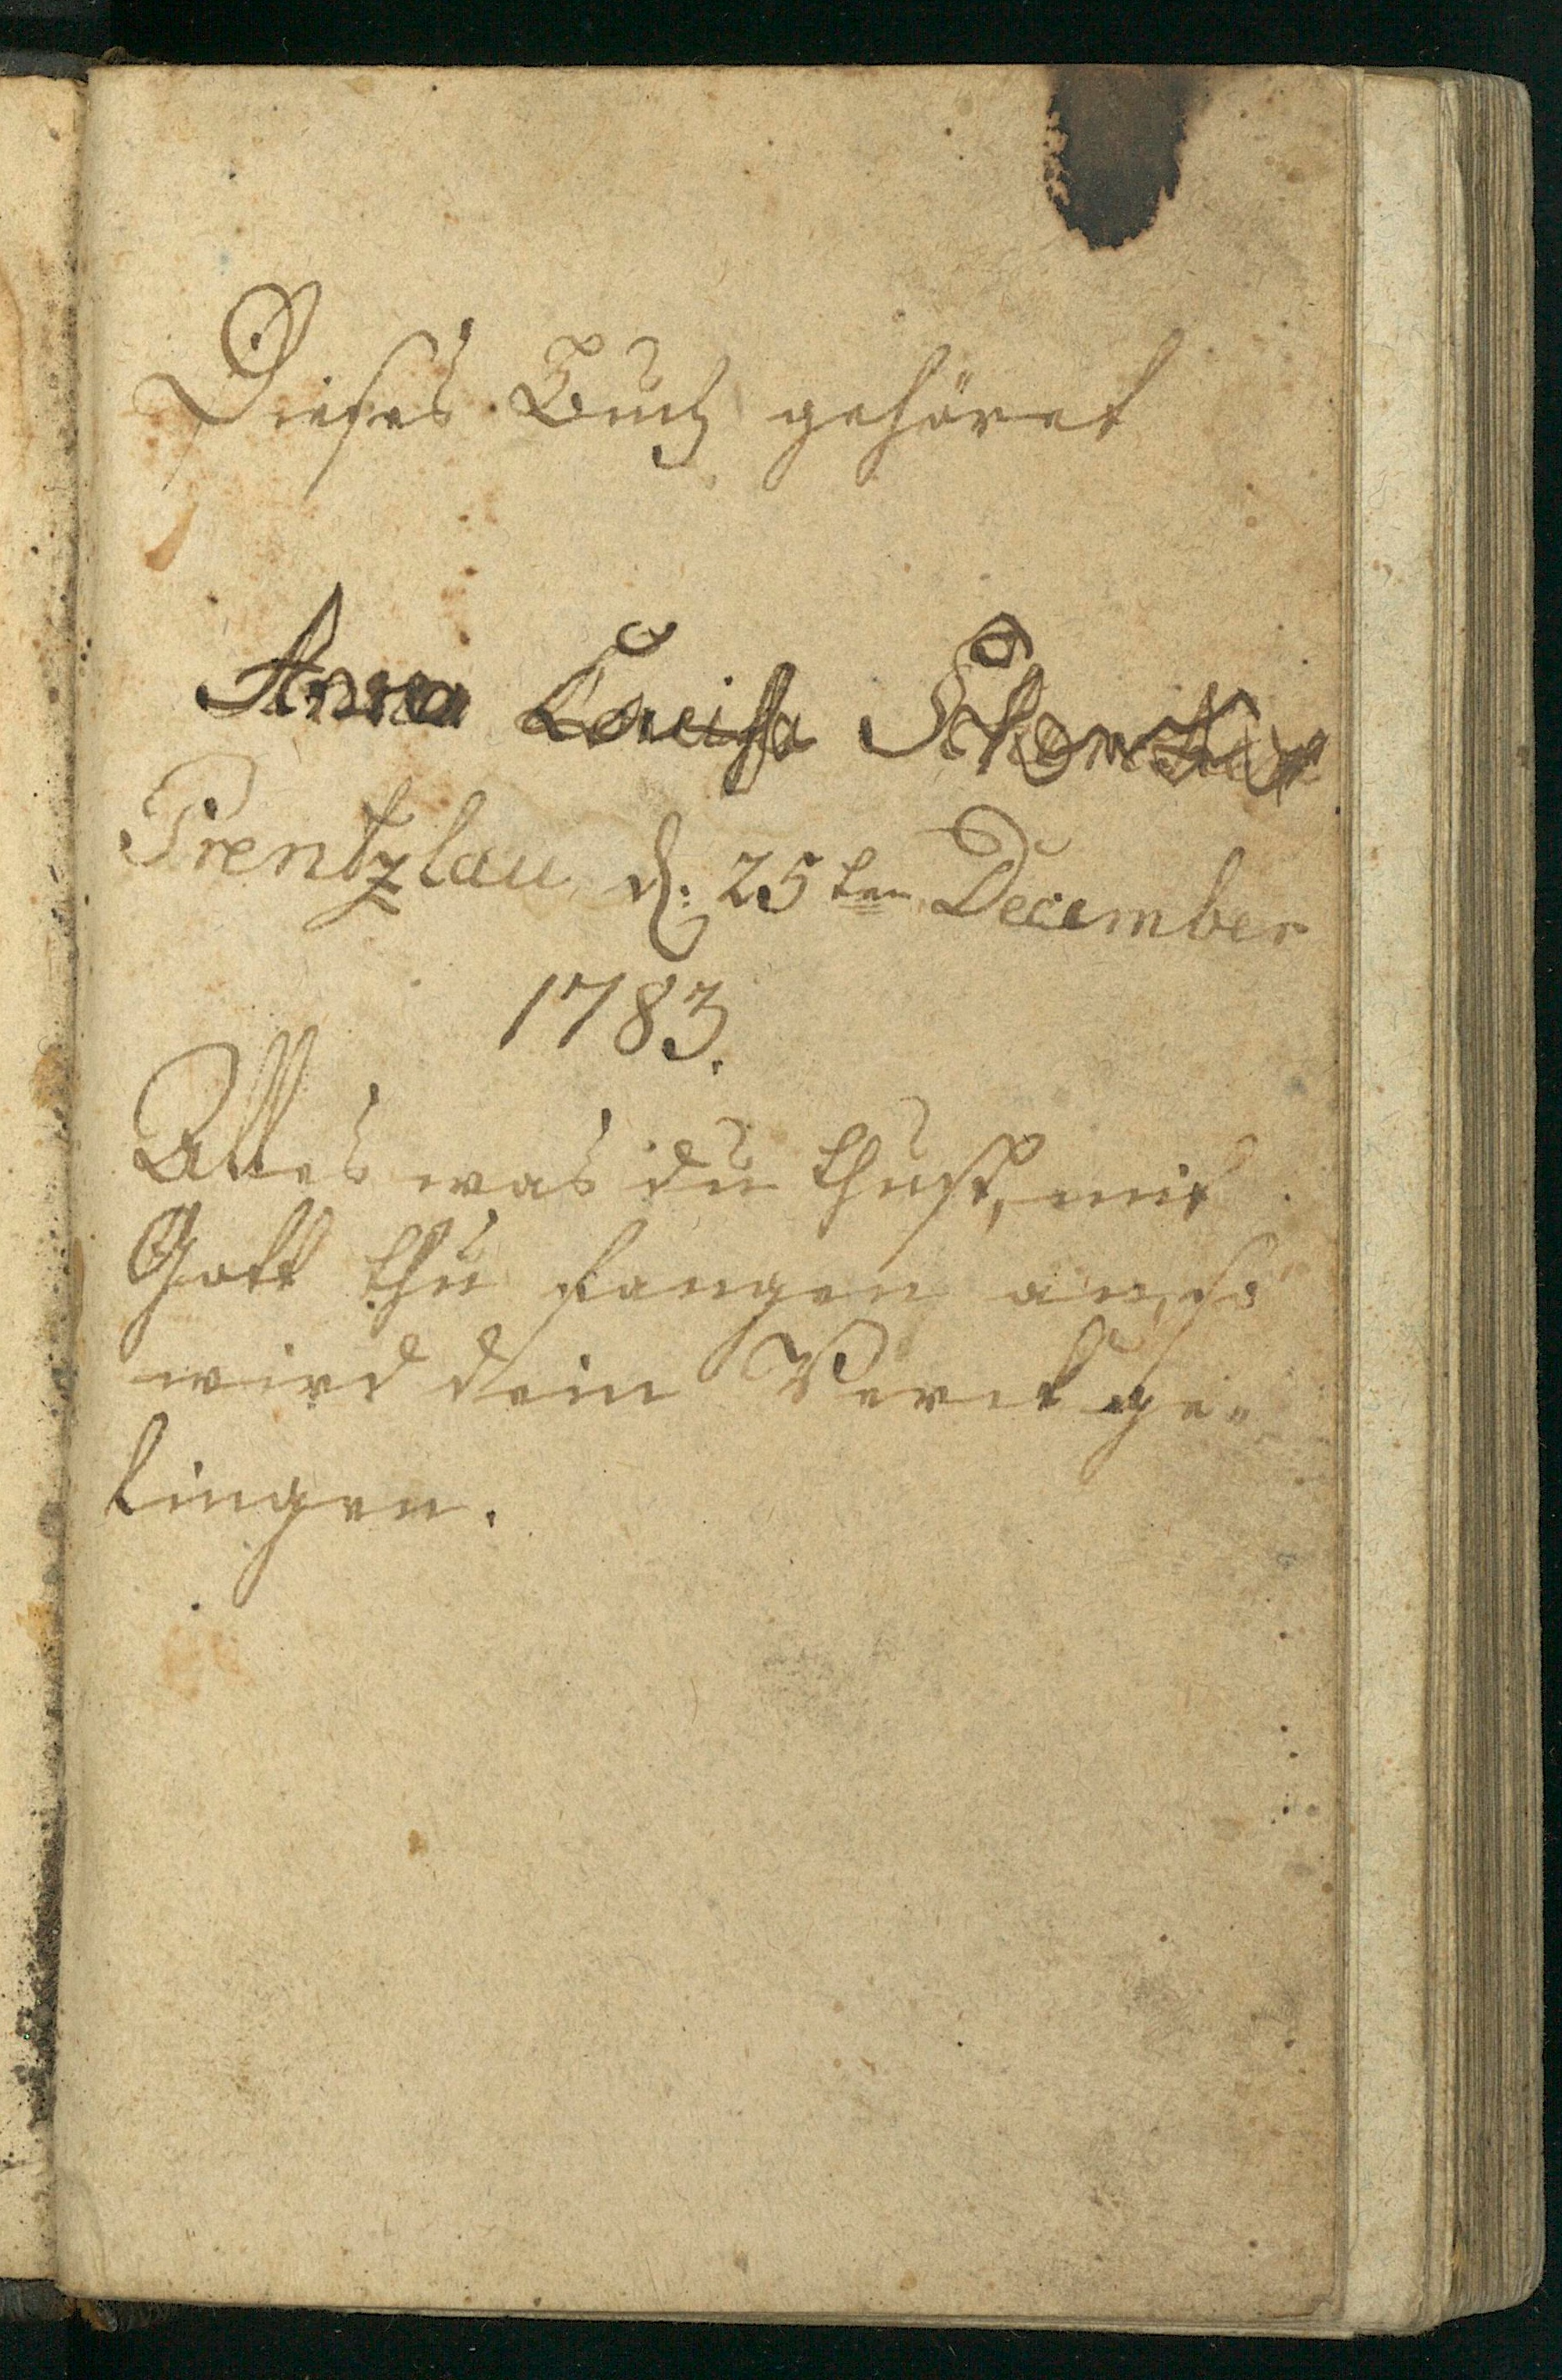 Dieses Buch gehöret
Anna Louisa
Prentzlau d. 25ten December
1783.
Alles was du thust, mit
Gott thu fangen an, so
wird dein Werck ge-
lingen.